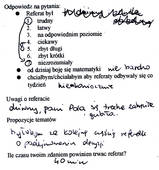 Odpowiedz na pytania:
• Referat był
1) trudny
2) łatwy
3) na odpowiednim poziomie
4) ciekawy
5) zbyt długi
6) zbyt krótki
7) nieźrozumiały
• od dzisiaj boję się matematyki nie bardzo
• chciałbym/chciałabym aby referaty odbywały się co
tydzień
Uwagi o referacie
dziwny, pani Pola się trochę
gubiła.
Propozycje tematów
o podejmowaniu decyzji
Ile czasu twoim zdaniem powinien trwać referat?
40 min